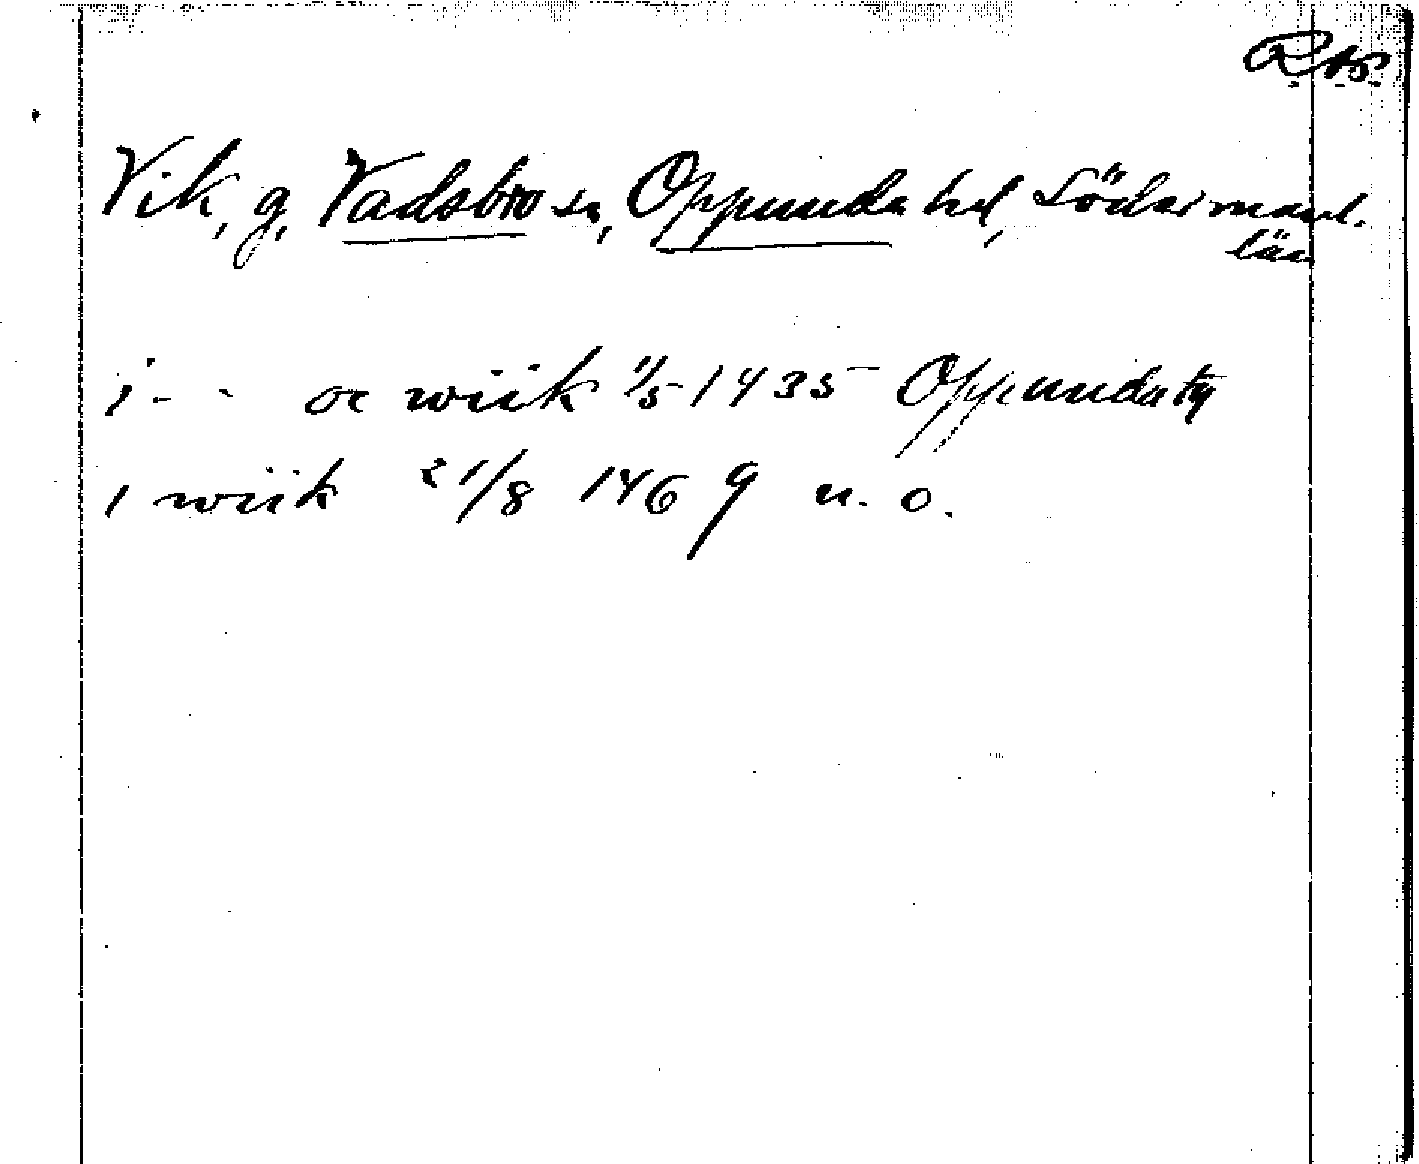 Vik, g, Vadsbro sn, Oppunda hd, Södermanl.
län
i - - oc wiik 1/5 1435 Oppundatg
i wiik 21/8 1469 u. o.